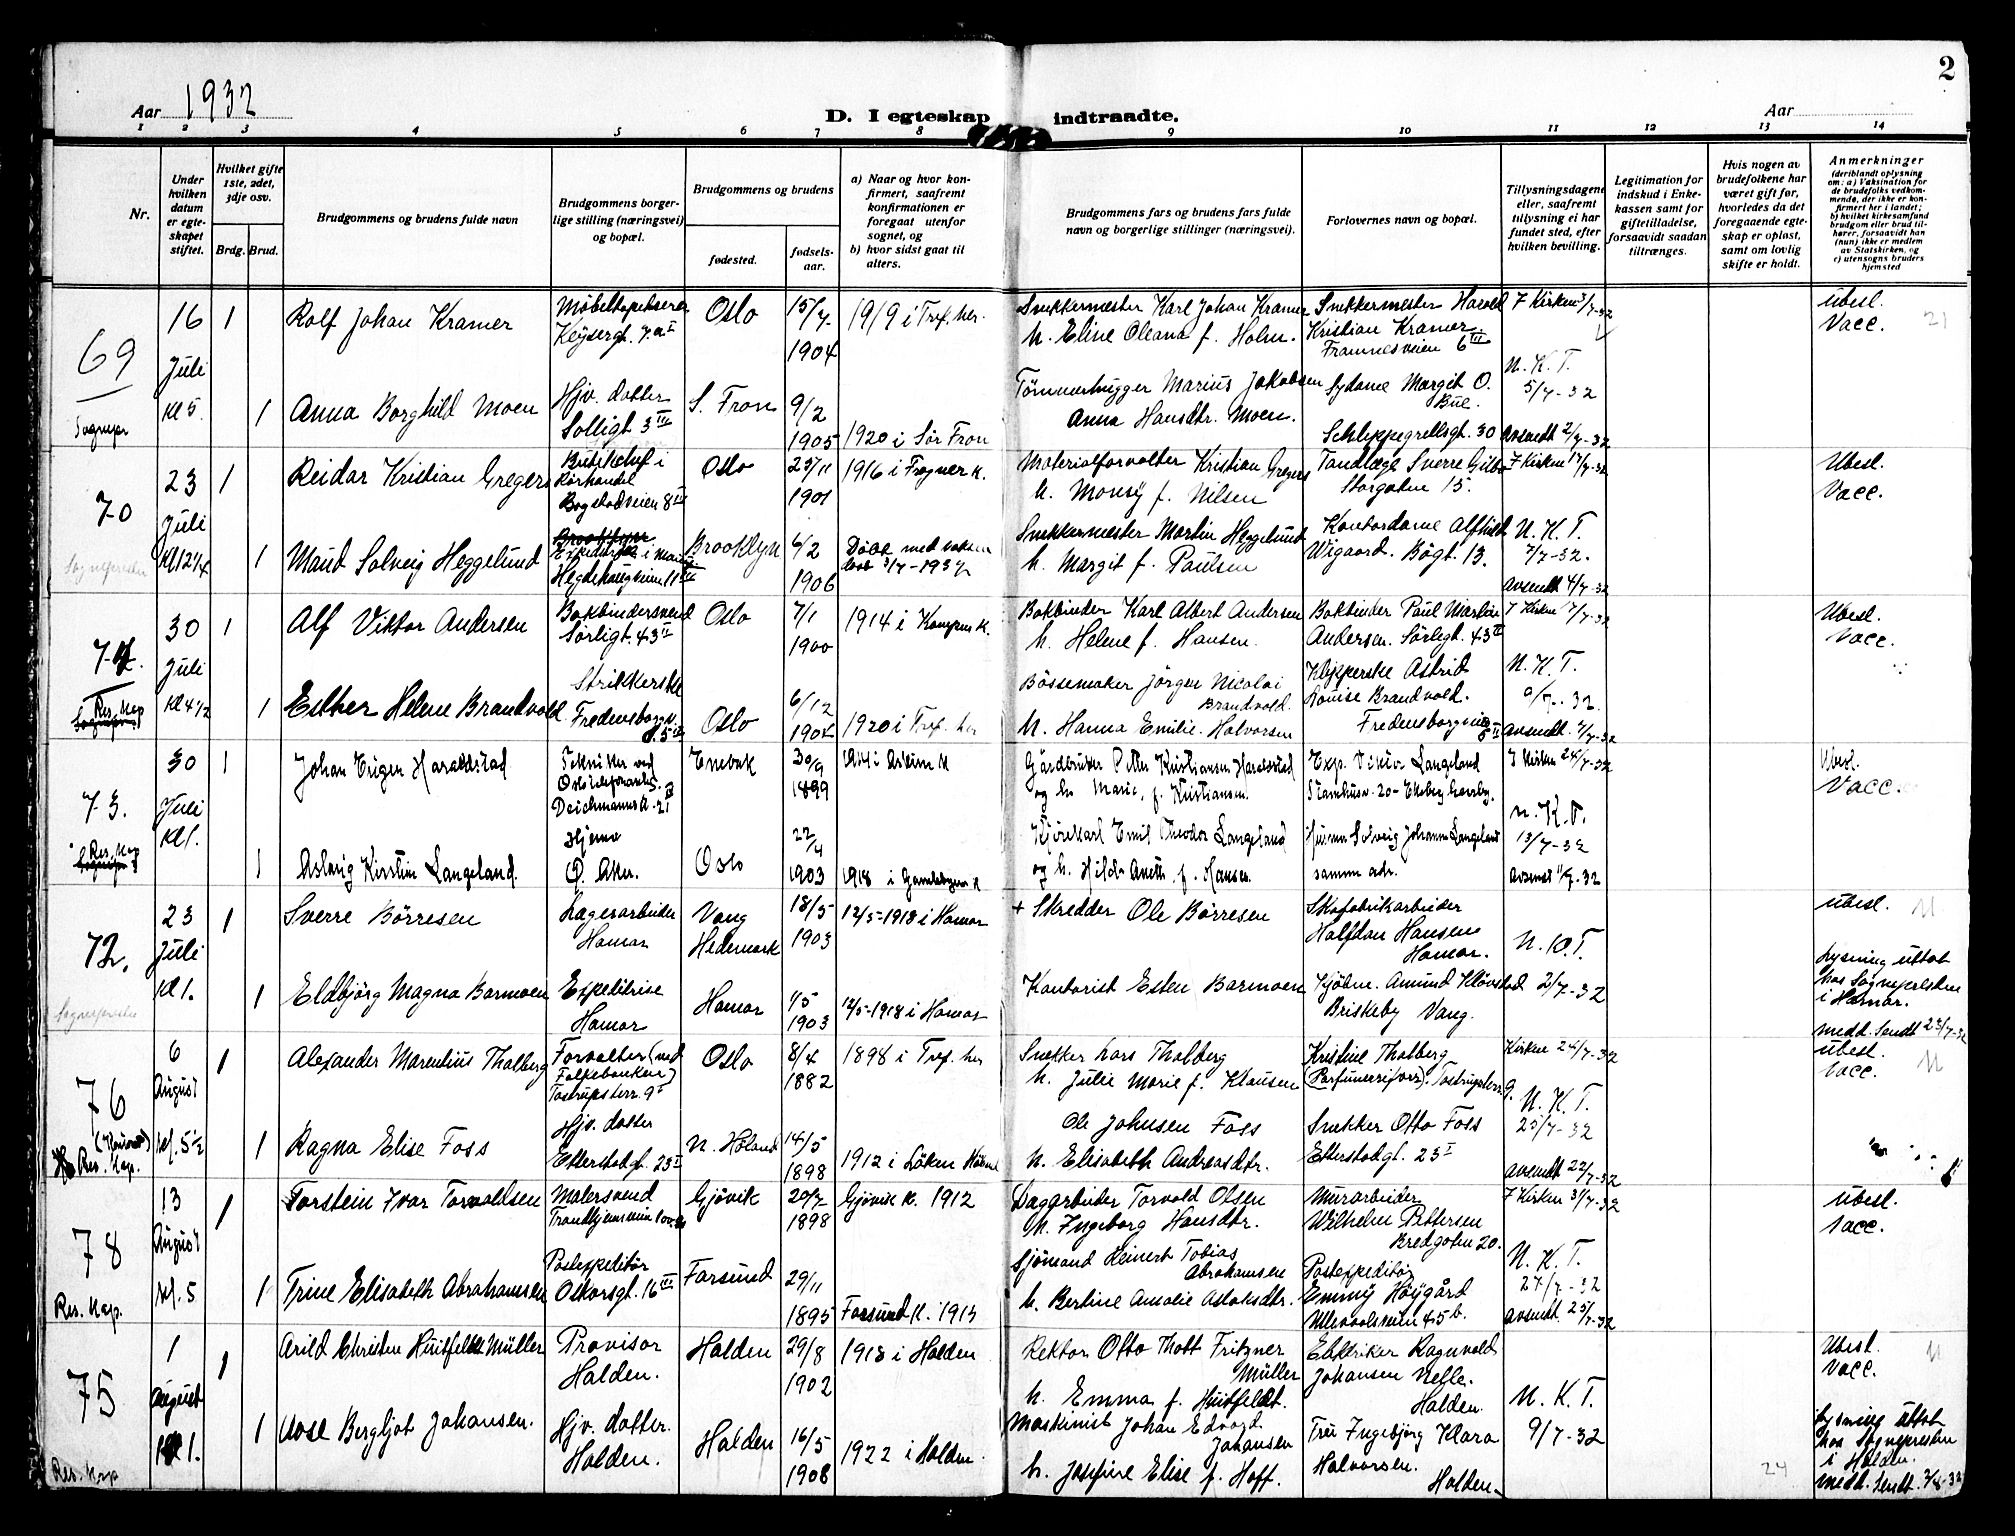 2
Aar 1932
D. I egteskap indtraadte.
Aar
1 2 3 4 5 6 7 8 9 10 11 12 13 14
Nr.
Under hvilken datum er egteskapet stiftet.
Hvilket gifte 1ste, 2det, 3dje osv.
Brdg. Brud.
Brudgommens og brudens fulde navn
Brudgommens borgerlige stilling (næringsvei) og bopæl.
Brudgommens og brudens
fødested.
fødselsaar.
a) Naar og hvor konfirmert, saafremt konfirmationen er foregaat utenfor sognet, og
b) hvor sidst gaat til alters.
Brudgommens fars og brudens fars fulde navn og borgerlige stillinger (næringsvei).
Forlovernes navn og bopæl.
Tillysningsdagene eller, saafremt tillysning ei har fundet sted, efter hvilken bevilling.
Legitimation for indskud i Enkekassen samt for giftetilladelse, forsaavidt saadan tiltrænges.
Hvis nogen av brudefolkene har været gift før, hvorledes da det foregaaende egteskap er opløst, samt om lovlig skifte er holdt.
Anmerkninger
(deriblandt oplysning om: a) Vaksination for de brudefolks vedkommende, der ikke er konfirmert her i landet; b) hvilket kirkesamfund brudgom eller brud tilhører, forsaavidt han (hun) ikke er medlem av Statskirken, og c) utensogns bruders hjemsted
69
16 Juli Kl 5
Sognepr
1 Rolf Johan Kramer
Keysergt. 7.
Oslo
15/7 1904
1919 i Tref. her.
Snekkermester Karl Johan Kramer
h. Eline Oleana f. Holm.
Snekkermester Harold
Kristian Kramer.
Framnesveien 6 III
F Kirken 3/7-32
Ubesl.
Vacc.
21
1 Anna Borghild Moen
Hjv. datter
Solligt. 3 III
S. Fron
9/2 1905
1920 i Sør Fron
Tømmerhugger Marius Jakobsen
Anna Hansdtr. Moen.
Sydame Margit O.
Bue.
Schleppegrellsgt. 30
N. K. T.
5/7-32
Avsendt 2/7-32
70
23 Juli Kl 12 1/4
Sognepresten
1 Reidar Kristian Gregers
Butikchef i
Rørhandel
Bogstadveien 8 III
Oslo
23/11 1901
1916 i Frogner K.
Materialforvalter Kristian Gregers
h. Moussy f. Nilsen
Tandlæge Sverre Gilbo
Storgaten 15.
F Kirken 17/7-32
Ubesl.
Vacc.
1 Maud Solveig Heggelund
Hegdehaugsveien 11 III
Brooklyn
6/2 1906
Døbt med voksen
3/7-1932
Snekkermester Martin Heggelund
h. Margit f. Paulsen
Kontordame Alfhild
Wigaard. Bögt. 13.
N. K. T.
7/7-32.
Avsendt 4/7-32
30 Juli Kl 4 1/2
Res. Kap
1 Alf Viktor Andersen
Bokbindersvend
Sørligt. 43 II
Oslo
7/1 1900
1914 i Kampen K.
Bokbinder Karl Albert Andersen
h. Helene f. Hansen.
Bokbinder Paul Martin
Andersen. Sörligt. 43 II
F Kirken 17/7-32
Ubesl.
Vacc.
1 Esther Helene Brandvold
Strikkerske
Fredensborgv.
Oslo
6/12
1920 i Tref. her
Bössemaker Jörgen Nicolai
Brandvold.
h. Hanna Emilie Halvorsen
Klipperske Astrid
Louise Brandvold.
Fredensborgveien
N. K. T.
9/7-32.
Avsendt 7/7-32
73.
30 Juli Kl 1.
Res. Kap
1 Johan Eriger Haraldstad
Tekniker ved
Deichmannsgt. 21
Enebak
30/9 1899
1914 i Askim K
Gårdbruker Petter Kristiansen Haraldstad
og h. Marie, f. Kristiansen.
Exp. Viktor Langeland
Stamhusv. 20 - Ekeberg haveby.
F Kirken 24/7-32
Ubesl.
Vacc.
1 Aslaug Kirstin Langeland.
Hjeme
Ø. Aker.
Oslo
22/4 1903
1918 i Gamlebyen K
Kjørekarl Emil Theodor Langeland
og h. Hilda Aneth. f. Hansen.
Husmor Solveig Johanna Langeland
samme adr.
N. K. T.
13/7-32
Avsendt 11/7-32
72.
23 Juli Kl 1.
Sognepresten
1 Sverre Börresen
Lagerarbeider
Hamar
Vang
Hedemark
18/5 1903
12/5-1918 i Hamar
+ Skredder Ole Börresen
Skofabrikarbeider
Halfdan Hansen
Hamar.
N. K. T.
Ubesl.
1 Eldbjörg Magna Barmoen
Expeditrise
Hamar
Hamar
1/5 1903
12/5-1918 i Hamar
Kontorist Esten Barmoen
Kjøbm. Amund Kløvstad
Briskeby Vang.
2/7-32
Lysning uttat
hos Sognepresten
i Hamar.
medd. Sendt 23/7-32
76
6 August Kl. 5 1/2
Res. Kap.
1 Alexander Marentius Thalberg
Forvalter (ved
Folkebanken)
Tostrupsterr. 9 I
Oslo
8/4 1882
1898 i Tref. her
Snekker Lars Thalberg
h. Julie Marie f. Klausen
Kristine Thalberg
(Parfumeriforr.) Tostrupsterr. 9.
Kirken 24/7-32
Ubesl.
Vacc.
1 Ragna Elise Foss
Hjv. datter
Etterstadgt. 23 I
N. Höland
14/5 1898
1912 i Löken Höland
Ole Johnsen Foss
h. Elisabeth Andreasdtr.
Snekker Otto Foss
Etterstadgt. 23 I
N. K. T.
25/7-32
Avsendt 22/7-32
78
13 August Kl. 5
Res. Kap.
1 Torstein Ivar Torvaldsen
Malersvend
Gjövik
20/7 1898
Gjövik K. 1912
Dagarbeider Torvald Olsen
h. Ingeborg Hansdtr.
Murarbeider
Wilhelm Pettersen
Bredgaten 20.
F Kirken 31/7-32
Ubesl.
Vacc.
1 Trine Elisabeth Abrahamsen
Postexpeditör
Oskarsgt. 16 III
Farsund
29/11 1895
Farsund K. 1913
Sjömand Reinert Tobias
Abrahamsen
h. Bertine Amalie Aslaksdtr.
Postexpeditör
Emmy Höygård
Ullevoldsveien 45 b.
N. K. T.
27/7-32
Avsendt 25/7-32
75
1 August Kl 1.
Res. Kap
1 Arild Christen Huitfeldt Müller
Provisor
Halden.
Halden
29/8 1902
1918 i Halden
Rektor Otto Thott Fritzner
Müller
h. Emma f. Huitfeldt.
Elektriker Ragnvald
Johansen Vefle.
Halden.
N. K. T.
Ubesl.
Vacc.
1 Aase Bergljot Johansen.
Hjv. datter.
Halden.
Halden
16/5 1908
1922 i Halden.
Maskinist Johan Edvard
Johansen
h. Josefine Elise f. Hoff.
Fru Ingebjörg Klara
Halvorsen.
Halden.
9/7-32
Lysning uttat
hos Sognepresten
i Halden.
medd. Sendt. 2/8-32
24